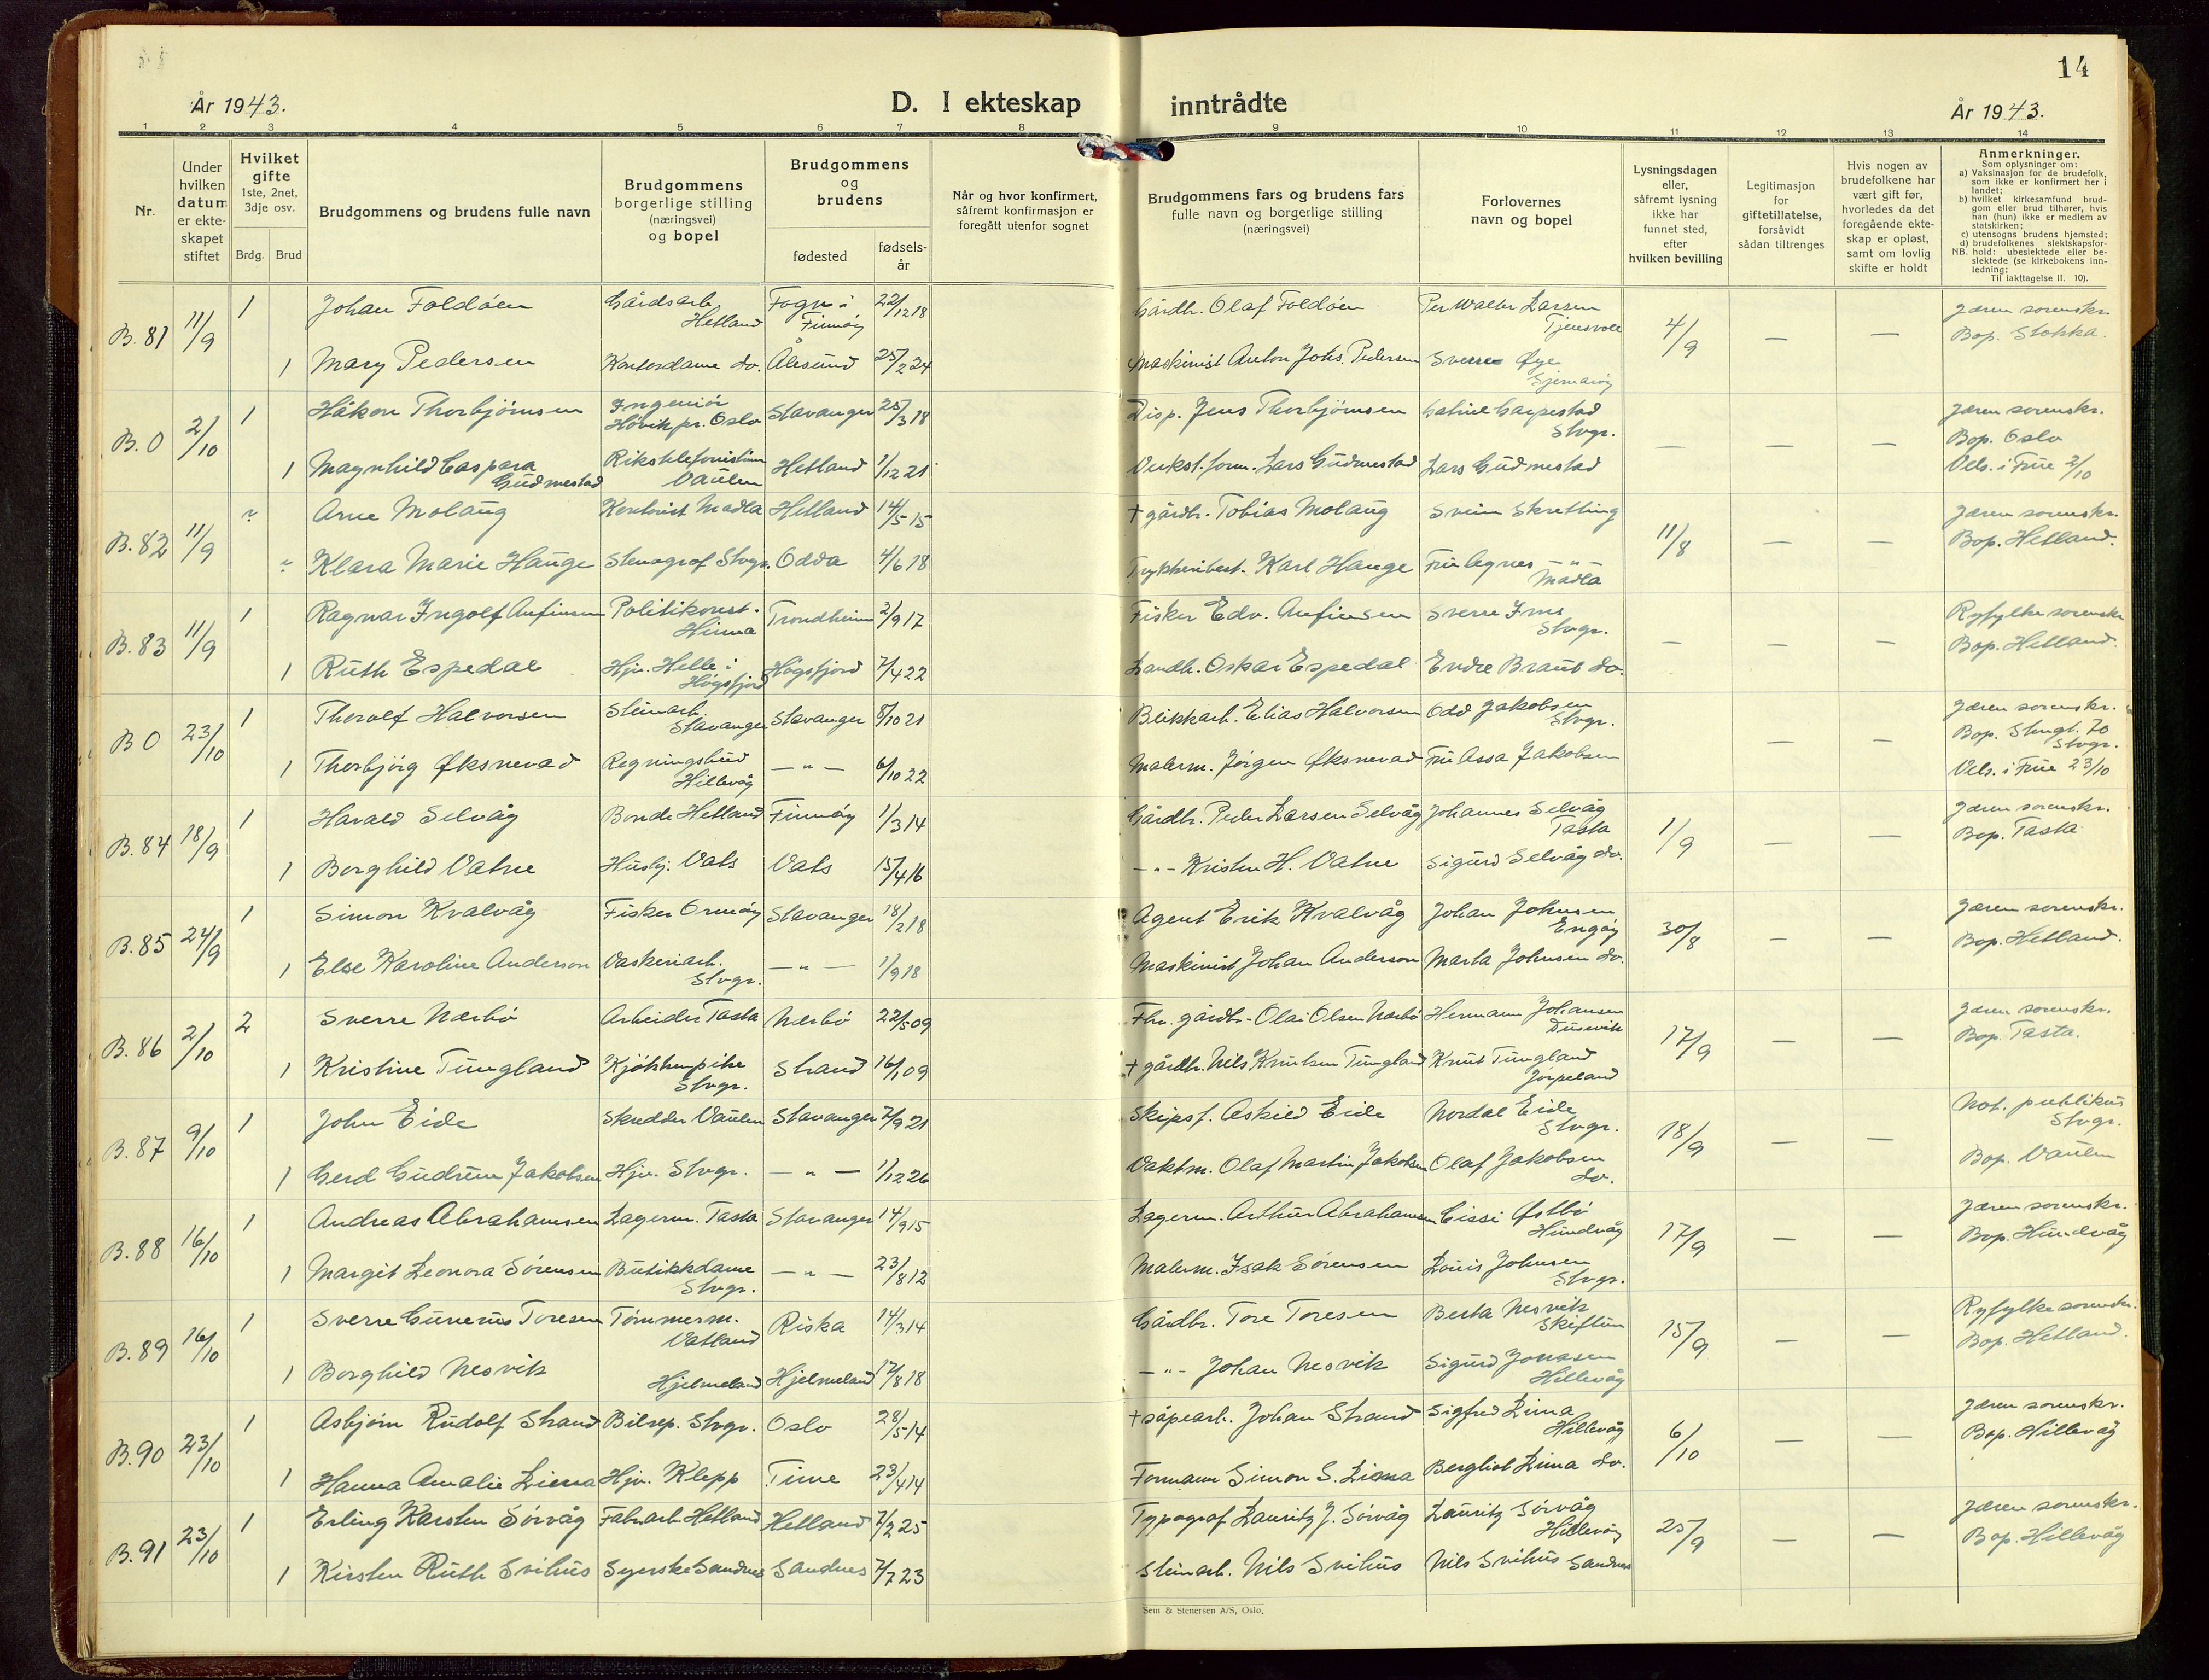 14
År 1943.
D. I ekteskap inntrådte
År 1943.
1 2 3 4 5 6 7 8 9 10 11 12 13 14
Nr.
Under hvilken datum er ekteskapet stiftet
Hvilket gifte 1ste, 2net, 3dje osv.
Brdg. Brud
Brudgommens og brudens fulle navn
Brudgommens borgerlige stilling (næringsvei) og bopel
Brudgommens og brudens
fødested
fødselsår
Når og hvor konfirmert, såfremt konfirmasjon er foregått utenfor sognet
Brudgommens fars og brudens fars fulle navn og borgerlige stilling (næringsvei)
Forlovernes navn og bopel
Lysningsdagen eller, såfremt lysning ikke har funnet sted, efter hvilken bevilling
Legitimasjon for giftetillatelse, forsåvidt sådan tiltrenges
Hvis nogen av brudefolkene har vært gift før, hvorledes da det foregående ekteskap er opløst, samt om lovlig skifte er holdt
Anmerkninger.
Som oplysninger om:
a) Vaksinasjon for de brudefolk, som ikke er konfirmert her i landet;
b) hvilket kirkesamfund brudgom eller brud tilhører, hvis han (hun) ikke er medlem av statskirken;
c) utensogns brudens hjemsted;
d) brudefolkenes slektskapsforhold: ubeslektede eller beslektede (se kirkebokens innledning;
NB. Til iakttagelse II. 10).
B. 81 11/9 1 Johan Foldøen Gårdsarb. Hetland Fogn i Finnøy 22/12 18 Gårdbr. Olaf Foldøen Per Walter Larsen Tjensvoll 4/9 — — Jæren sorenskr. Bop. Stokka.
1 Mary Pedersen Kontordame do. Ålesund 25/2 24 Maskinist Anton Johs. Pedersen Sverre Øye Sjernarøy
B. 0 2/10 1 Håkon Thorbjørnsen Ingeniør Høvik pr. Oslo Stavanger 25/3 18 Disp. Jens Thorbjørnsen Gabriel Garpestad Stvgr. — — — Jæren sorenskr. Bop. Oslo
1 Magnhild Caspara Gudmestad Rikstelefonistinne Vaulen Hetland 1/12 21 Verkst. form. Lars Gudmestad Lars Gudmestad Vels. i Frue 2/10
B. 82 11/9 Arne Molaug Kontorist Madla Hetland 14/5 15 † gårdbr. Tobias Molaug Svein Skretting 11/8 — — Jæren sorenskr. Bop. Hetland.
Klara Marie Hauge Stenograf Stvgr. Odda 4/6 18 Trykkeribest. Karl Hauge Fru Agnes —"— Madla
B. 83 11/9 1 Ragnar Ingolf Anfinsen Politikonst. Hinna Trondheim 2/9 17 Fisker Edv. Anfinsen Sverre Ims Stvgr. — — — Ryfylke sorenskr. Bop. Hetland.
1 Ruth Espedal Hjv. Helle i Høgsfjord Høgsfjord 7/4 22 Landh. Oskar Espedal Endre Braut do.
B 0 23/10 1 Thorolf Halvorsen Steinarb. Stavanger Stavanger 8/10 21 Blikkarb. Elias Halvorsen Odd Jakobsen Stvgr. — — Jæren sorenskr. Bop. Stengt. 70 Stvgr.
1 Thorbjörg Øksnevad Regningsbud Hillevåg —"— 6/10 22 Malerm. Jörgen Øksnevad Fru Assa Jakobsen Vels. i Frue 23/10
B. 84 18/9 1 Harald Selvåg Bonde Hetland Finnøy 1/3 14 Gårdbr. Peder Larsen Selvåg Johannes Selvåg Tasta 1/9 — — Jæren sorenskr. Bop. Tasta
1 Borghild Vatne Husbj. Vats Vats 15/4 16 —"— Kristen H. Vatne Sigurd Selvåg do.
B. 85 24/9 1 Simon Kvalvåg Fisker Ormøy Stavanger 18/2 18 Agent Erik Kvalvåg Johan Johnsen Engøy 30/8 — — Jæren sorenskr. Bop. Hetland.
1 Else Karoline Anderson Vaskeriarb. Stvgr. —"— 1/9 18 Maskinist Johan Anderson Marta Johnsen do.
B. 86 2/10 2 Sverre Nærbø Arbeider Tasta Nærbø 22/5 09 Fhv. gårdbr. Olai Olsen Nærbø Hermann Johansen Dusevik 17/9 — — Jæren sorenskr. Bop. Tasta.
1 Kristine Tungland Kjøkkenpike Stvgr. Strand 16/1 09 † gårdbr. Nils Knutsen Tungland Knut Tungland Jørpeland
B. 87 9/10 1 John Eide Skredder Vaulen Stavanger 7/9 21 Skipsf. Askild Eide Nordal Eide Stvgr. 18/9 — — Not. publikus Stvgr.
1 Gerd Gudrun Jakobsen Hjv. Stvgr. —"— 1/12 26 Vaktm. Olaf Martin Jakobsen Olaf Jakobsen do. Bop. Vaulen
B. 88 16/10 1 Andreas Abrahamsen Lagerm. Tasta Stavanger 14/9 15 Lagerm. Arthur Abrahamsen Cissi Østbø Hundvåg 17/9 — — Jæren sorenskr. Bop. Hundvåg
1 Margit Leonora Sørensen Butikkdame Stvgr. —"— 23/8 12 Malerm. Isak Sørensen Louis Johnsen Stvgr.
B. 89 16/10 1 Sverre Gunerius Toresen Tømmerm. Vatland Riska 14/3 14 Gårdbr. Tore Toresen Berta Nesvik Skiftun 15/9 — — Ryfylke sorenskr. Bop. Hetland.
1 Borghild Nesvik Hjelmeland Hjelmeland 17/8 18 —"— Johan Nesvik Sigurd Jonasen Hillevåg
B. 90 23/10 1 Asbjørn Rudolf Strand Bilrep. Stvgr. Oslo 28/5 14 † såpearb. Johan Strand Sigfred Lima Hillevåg 6/10 — — Jæren sorenskr. Bop. Hillevåg
1 Hanna Amalie Lima Hjv. Klepp Time 23/4 14 Formann Simon S. Lima Bergliot Lima do.
B. 91 23/10 1 Erling Karsten Sørvåg Fabr.arb. Hetland Hetland 7/2 25 Typograf Lauritz J. Sørvåg Lauritz Sørvåg Hillevåg 25/9 — — Jæren sorenskr. Bop. Hillevåg
1 Kirsten Ruth Svihus Syerske Sandnes Sandnes 7/7 23 Steinarb. Nils Svihus Nils Svihus Sandnes
Sem & Stenersen A/S, Oslo.